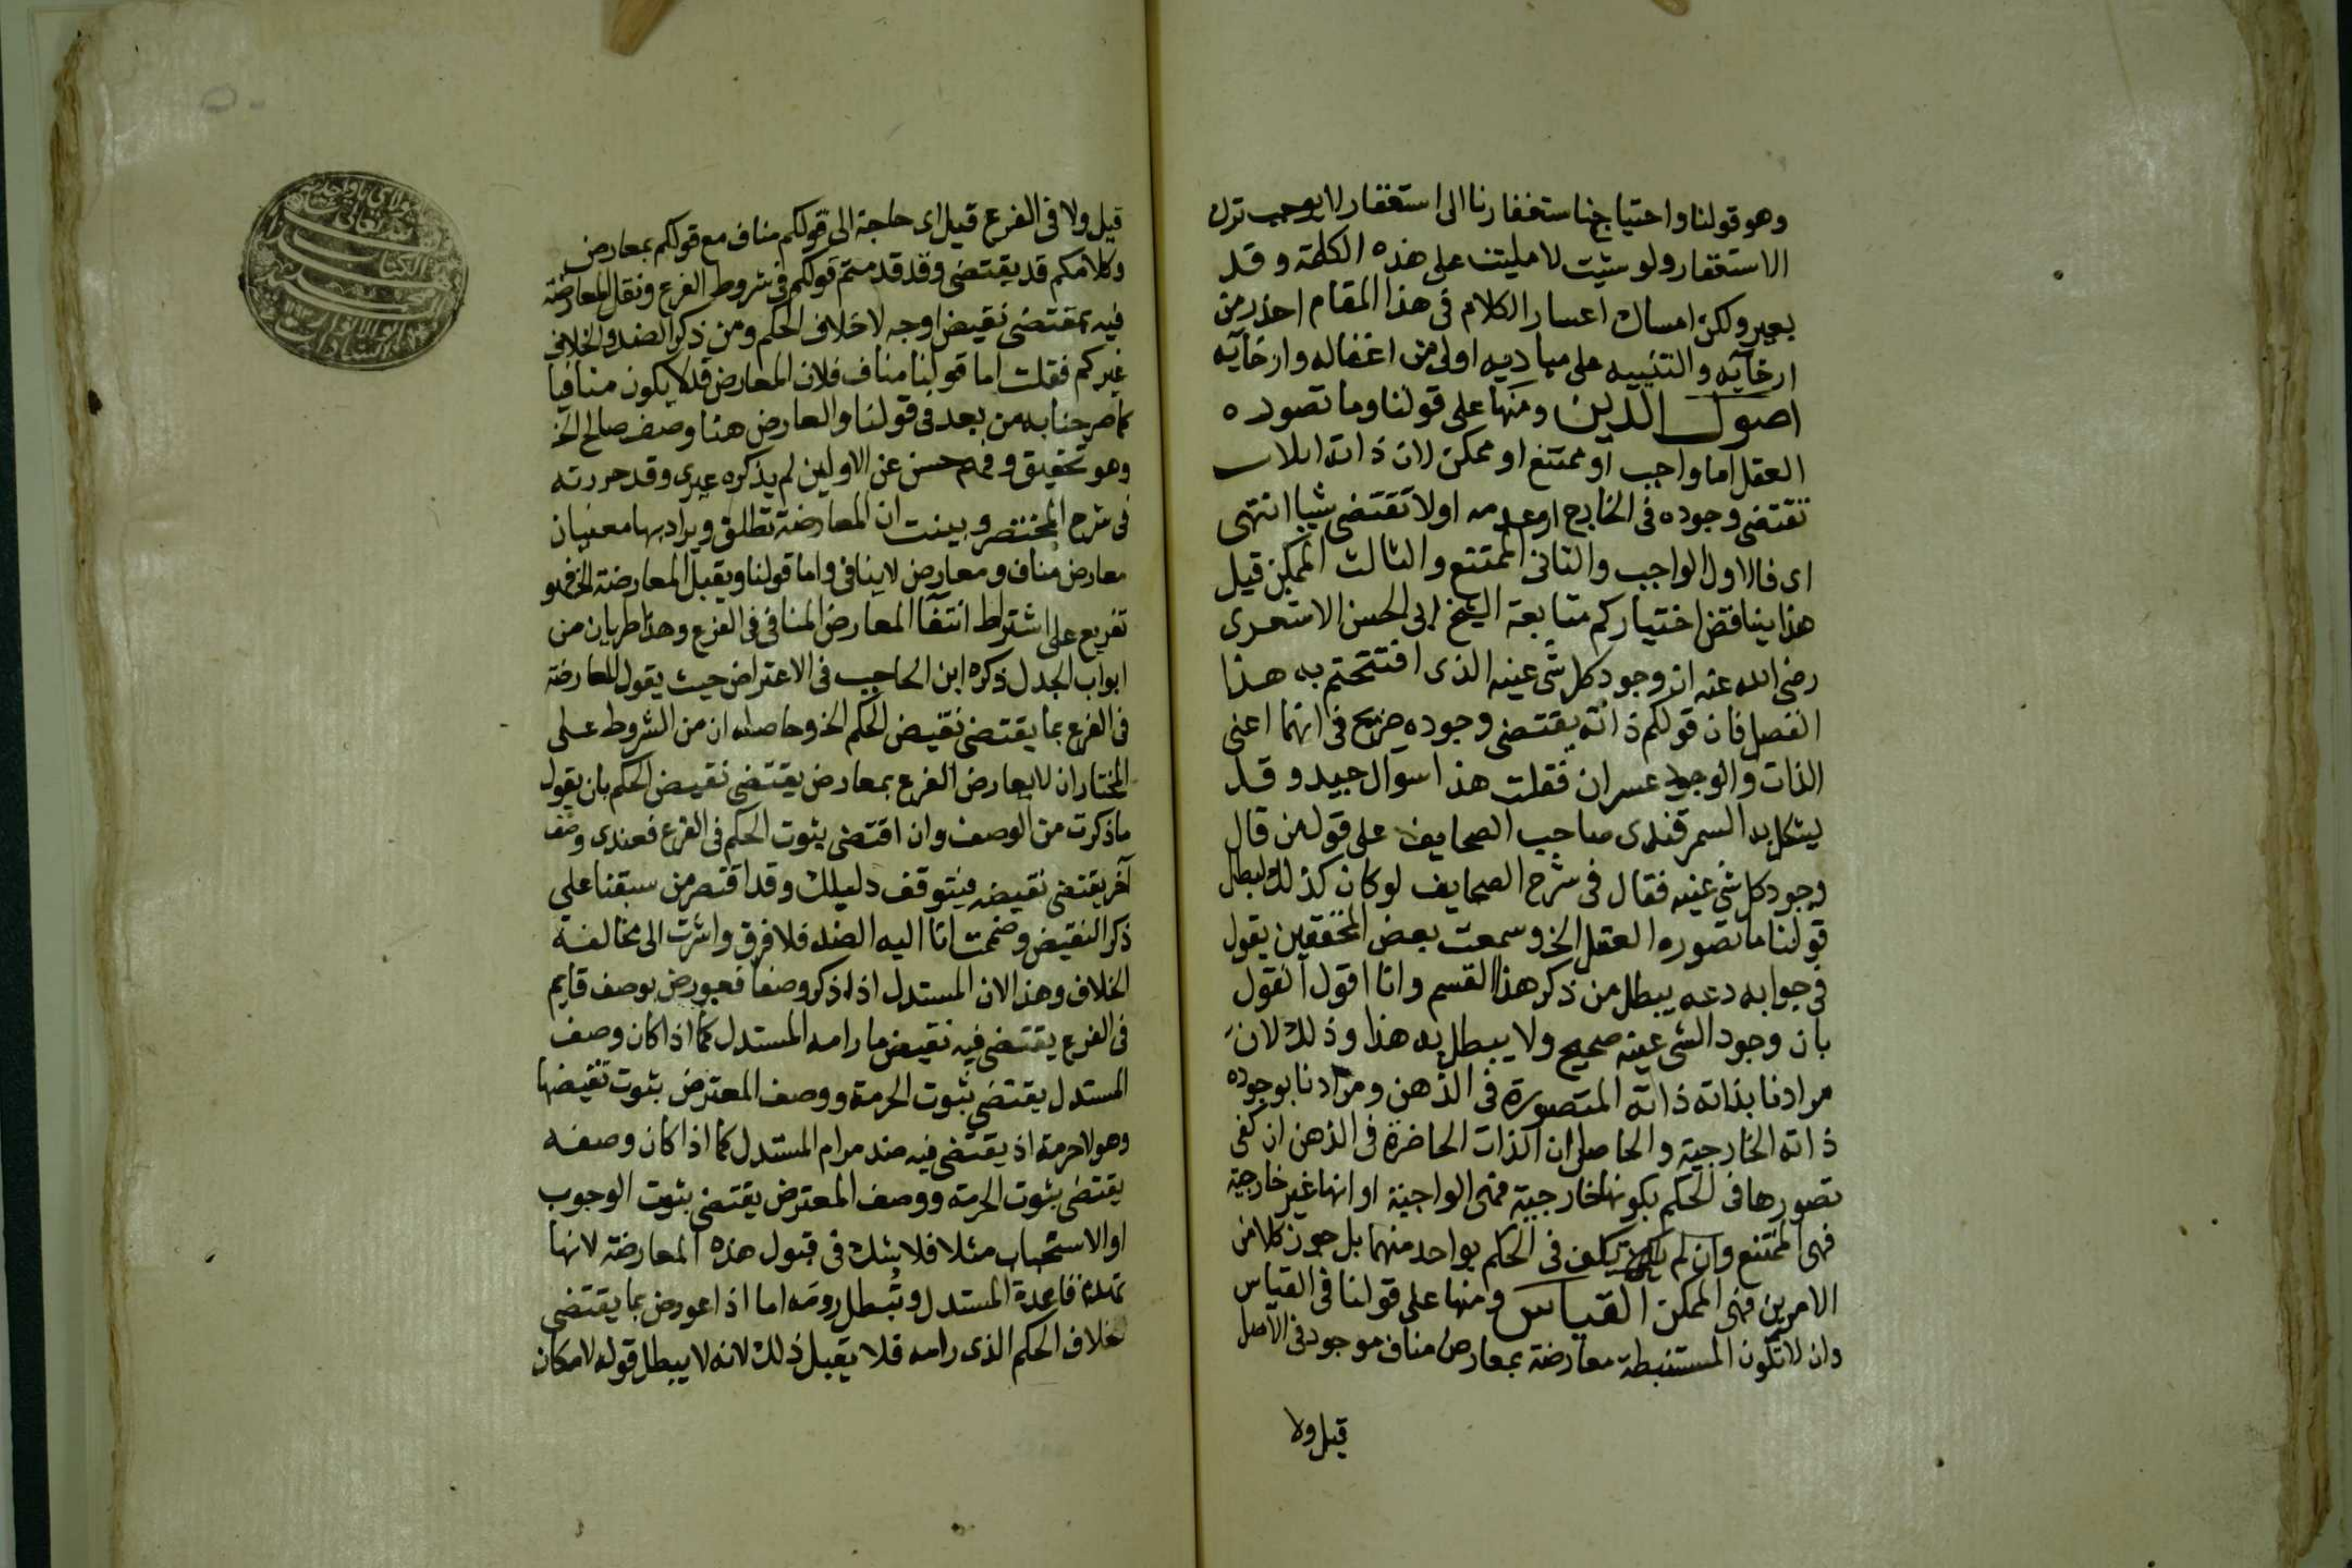 وهو قولنا واحتياجنا ستغفارنا الى استغفار لا يوجب ترك
الاستغفار ولو شئت لامليت على هذه الكلمة وقد
يعبر ولكن امساك اعسار الكلام فى هذا المقام احذر من
ارخآيه والتنبيه على مباديه اولى من اغفاله وارخآيه
اصول الدين ومنها على قولنا وما تصوره
العقل اما واجب او ممتنع او ممكن لان ذاته اما ان
تقتضى وجوده فى الخارج او عدمه اولا تقتضى شيا انتهى
اى فالاول الواجب والثانى الممتنع والثالث الممكن قيل
هذا يناقض اختياركم متابعة الشيخ ابى الحسن الاشعرى
رضى الله عنه ان وجود كل شى عينه الذى افتتحتم به هذا
الفصل فان قولكم ذاته يقتضى وجوده صريح فى انهما اعنى
الذات والوجود غيران فقلت هذا سوال جيد وقد
يشكل به السمرقندى صاحب الصحايف على قول من قال
وجود كل شى عينه فقال فى شرح الصحايف لو كان كذلك لبطل
قولنا ما تصوره العقل الخ وسمعت بعض المحققين يقول
فى جوابه دعه يبطل من ذكر هذا القسم وانا اقول القول
بان وجود الشى عينه صحيح ولا يبطل به هذا وذلك لان
مرادنا بذاته ذاته المتصورة فى الذهن ومرادنا بوجوده
ذاته الخارجية والحاصل ان الذات الحاضرة فى الذهن ان كفى
تصورها فى الحكم بكونها خارجية فهى الواجبة او انها غير خارجية
فهى الممتنع وان لم يكف فى الحكم بواحد منهما بل جوز كلا من
الامرين فهى الممكن القياس ومنها على قولنا فى القياس
وان لا تكون المستنبطة معارضة بمعارض مناف موجود فى الاصل
قيل ولا
قيل ولا فى الفرع قيل اى حاجة الى قولكم مناف مع قولكم بمعارض
وكلامكم قد يقتضى وقد قدمتم قولكم فى شروط الفرع ونقل المعارضة
فيه بمقتضى نقيض اوجه لا خلاف الحكم ومن ذكر الضد والخلافى
غيركم فقلت اما قولنا مناف فلان المعارض قد لا يكون منافيا
كما صرحنا به من بعد فى قولنا والعارض هنا وصف صالح الخ
وهو تحقيق وفهم حسن عن الاولين لم يذكره غيرى وقد حررته
فى شرح المختصر وبينت ان المعارضة تطلق ويراد بها معنيان
معارض مناف ومعارض لا ينافى واما قولنا ويقبل المعارضة الخ فهو
تفريع على اشتراط انتفا المعارض المنافى فى الفرع وهذا طريان من
ابواب الجدل ذكره ابن الحاجب فى الاعتراض حيث يقول المعارضة
فى الفرع بما يقتضى نقيض الحكم الخ وحاصله ان من الشروط على
المختار ان لا يعارض الفرع بمعارض يقتضى نقيض الحكم بان يقول
ما ذكرت من الوصف وان اقتضى بثوت الحكم فى الفرع فعندى وصف
آخر يقتضى نقيضه فيتوقف دليلك وقد اقتصر من سبقنا على
ذكر النقيض وضممت انا اليه الضد فلا فرق واشرت الى مخالفة
الخلاف وهذا لان المستدل اذا ذكر وصفا فعورض بوصف قايم
فى الفرع يقتضى فيه نقيض ما رامه المستدل كما اذا كان وصف
المستدل يقتضى بثوت الحرمة ووصف المعترض بثوت نقيضها
وهو لا حرمة اذ يقتضى فيه ضد مرام المستدل كما اذا كان وصفه
يقتضى بثوت الحرمة ووصف المعترض يقتضى بثوت الوجوب
او الاستحباب مثلا فلا يشك فى قبول هذه المعارضة لانها
تهدم قاعدة المستدل وتبطل رومه اما اذا عورض بما يقتضى
خلاف الحكم الذى رامه فلا يقبل ذلك لانه لا يبطل قوله لامكان